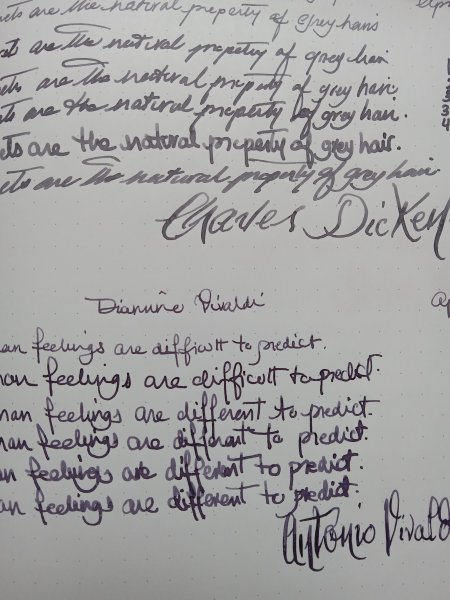 are the natural property of grey hairs
are the natural property of grey hair
are the natural property of grey hair
ts are the natural property of grey hair.
ets are the natural property of grey hair.
ets are the natural property of grey hair
Charles Dicken
Vivaldi
an feelings are difficult to predict.
man feelings are difficult to predict.
man feelings are different to predict.
man feelings are different to predict.
an feelings are different to predict.
an feelings are different to predict.
Antonio Vivald